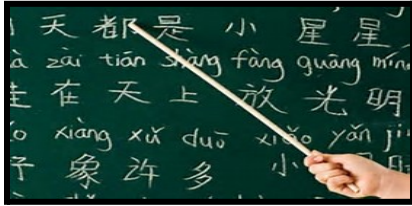 天都是小星星
zài tiān shàng fàng guāng
在天上放光明
xiàng xǔ duō xiǎo yǎn
象许多小